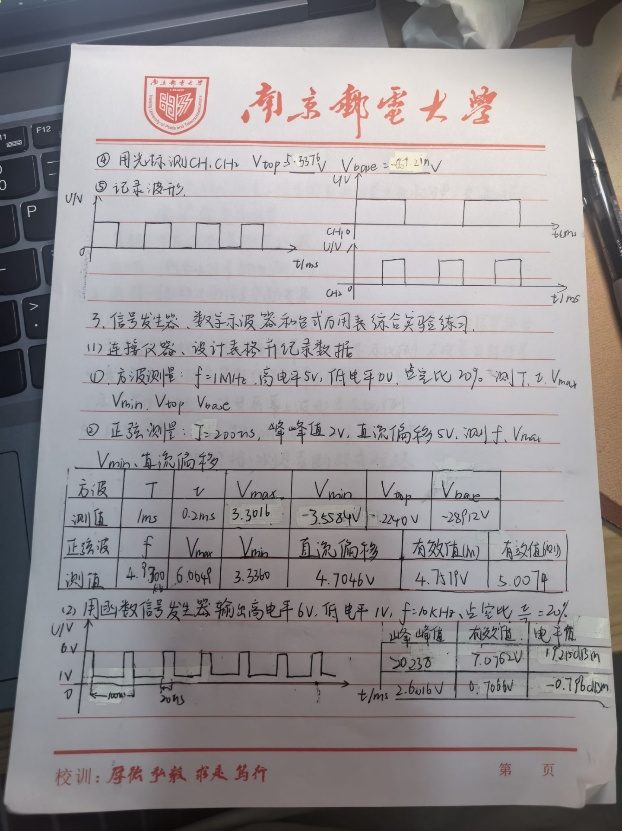 南京邮电大学
④ 用光标测CH1.CH2 Vtop 5.3376V Vbase = V
⑤ 记录波形.
U/V
0
t/ms
U/V
CH1 0
t/ms
U/V
CH2 0
t/ms
3. 信号发生器、数字示波器和台式万用表综合实验练习.
(1) 连接仪器、设计表格并纪录数据
①. 方波测量: f=1MHz. 高电平5V, 低电平0V, 占空比20%. 测T, τ, Vmax
Vmin, Vtop Vbase
② 正弦测量: T=200ns, 峰峰值2V, 直流偏移5V, 测f, Vmax
Vmin, 直流偏移
方波 T τ Vmax Vmin Vtop Vbase
测值 1ms 0.2ms 3.3016 -3.5584V -2240V -28912V
正弦波 f Vmax Vmin 直流偏移 有效值 有效值
测值 6.0649 3.3360 4.7046V 4.7519V 5.0074
(2) 用函数信号发生器输出高电平6V, 低电平1V, f=10kHz, 占空比 =20%
U/V
6V
1V
0
100ns
20ns
t/ms
峰峰值 有效值 电平值
20.238 7.0762V
2.6016V 0.7066V -0.796dBm
校训: 厚德 弘毅 求是 笃行
第 页
F12
P